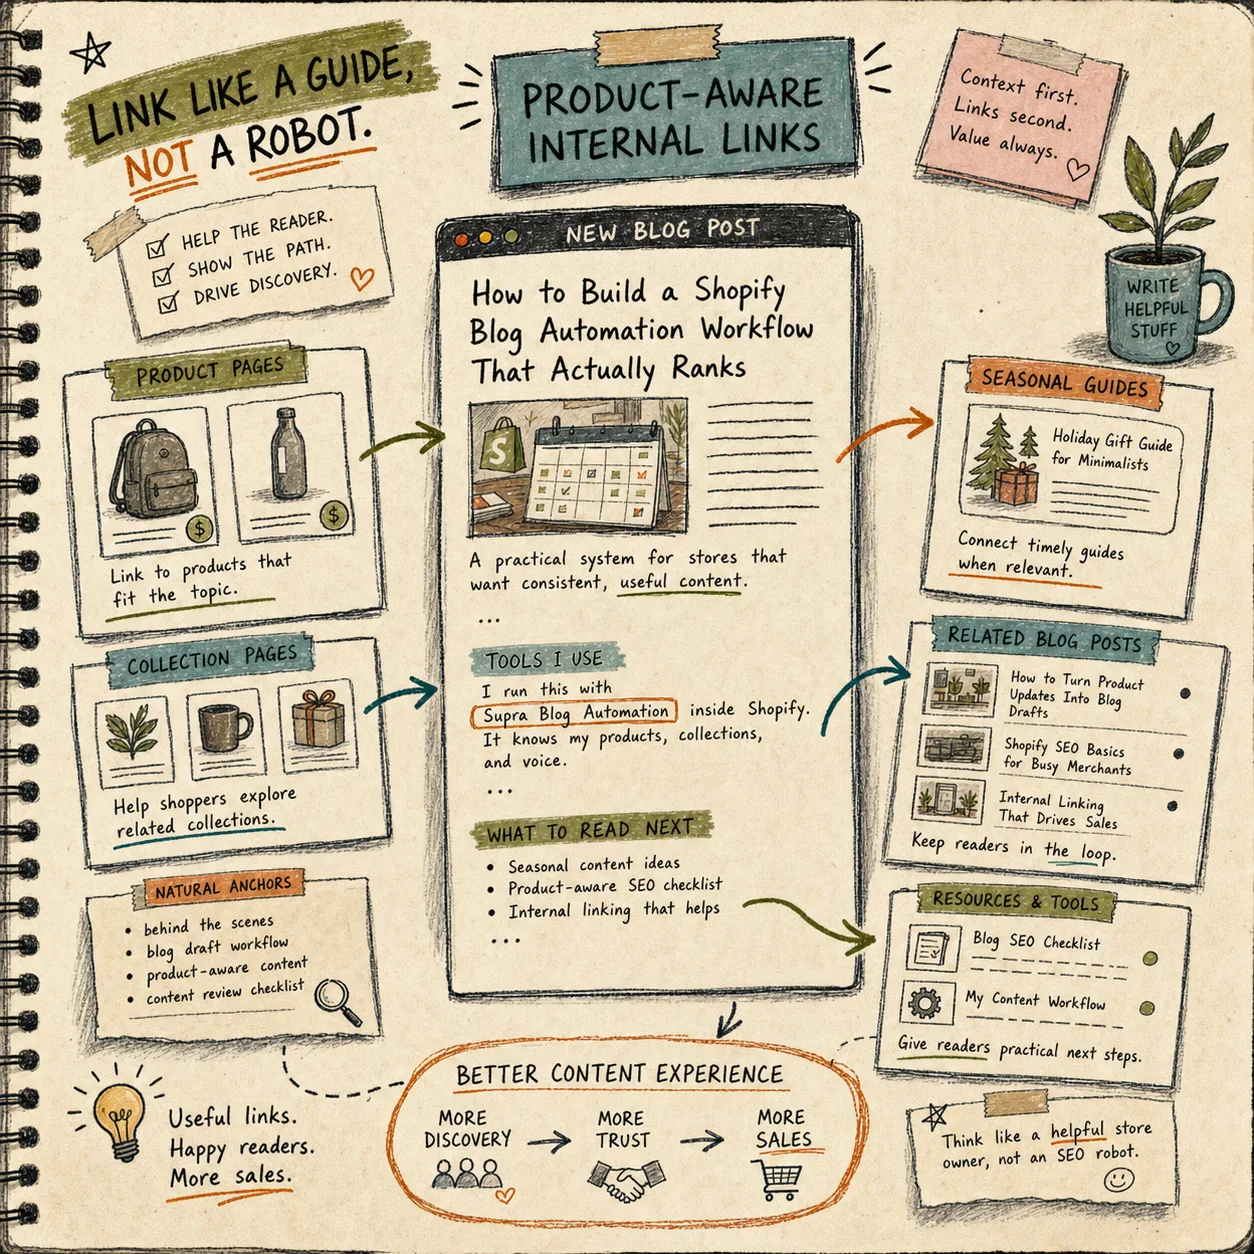 LINK LIKE A GUIDE,
NOT A ROBOT.
HELP THE READER.
SHOW THE PATH.
DRIVE DISCOVERY.
PRODUCT-AWARE
INTERNAL LINKS
Context first.
Links second.
Value always.
WRITE
HELPFUL
STUFF
PRODUCT PAGES
$
$
Link to products that
fit the topic.
COLLECTION PAGES
Help shoppers explore
related collections.
NATURAL ANCHORS
• behind the scenes
• blog draft workflow
• product-aware content
• content review checklist
Useful links.
Happy readers.
More sales.
NEW BLOG POST
How to Build a Shopify
Blog Automation Workflow
That Actually Ranks
S
A practical system for stores that
want consistent, useful content.
...
TOOLS I USE
I run this with
Supra Blog Automation inside Shopify.
It knows my products, collections,
and voice.
...
WHAT TO READ NEXT
• Seasonal content ideas
• Product-aware SEO checklist
• Internal linking that helps
...
SEASONAL GUIDES
Holiday Gift Guide
for Minimalists
Connect timely guides
when relevant.
RELATED BLOG POSTS
How to Turn Product
Updates Into Blog
Drafts
Shopify SEO Basics
for Busy Merchants
Internal Linking
That Drives Sales
Keep readers in the loop.
RESOURCES & TOOLS
Blog SEO Checklist
My Content Workflow
Give readers practical next steps.
Think like a helpful store
owner, not an SEO robot.
BETTER CONTENT EXPERIENCE
MORE
DISCOVERY
MORE
TRUST
MORE
SALES